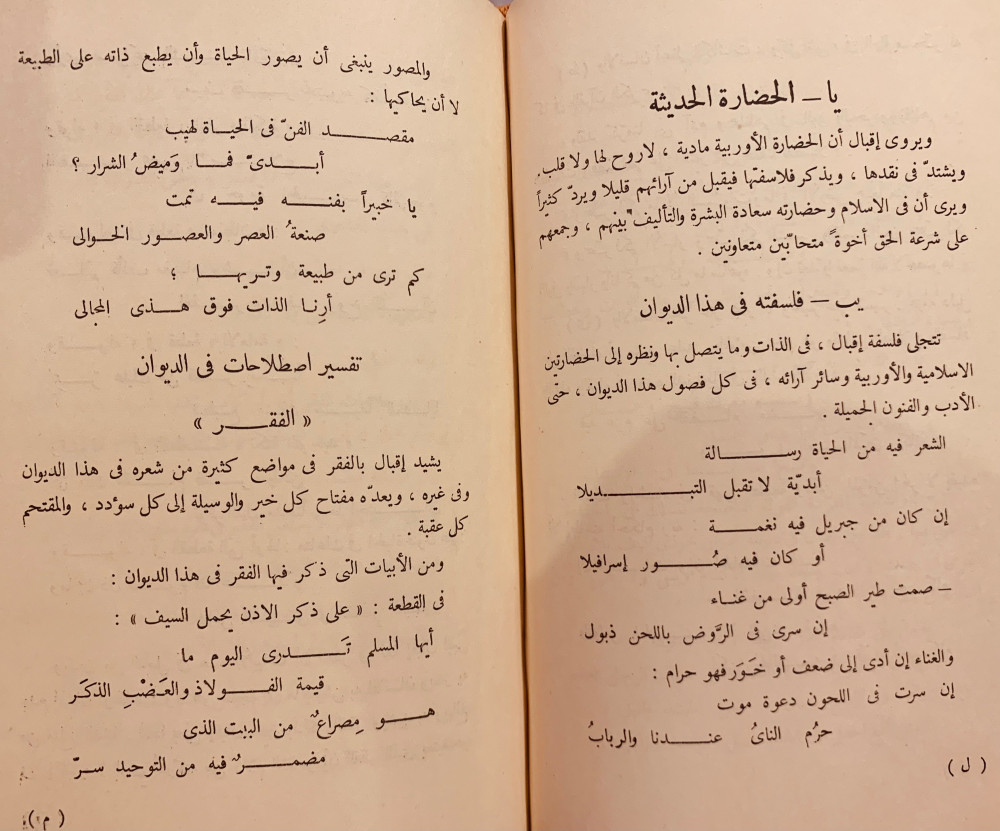 يا — الحضارة الحديثة
ويروى إقبال أن الحضارة الأوربية مادية ، لاروح لها ولا قلب.
ويشتدّ فى نقدها ، ويذكر فلاسفتها فيقبل من آرائهم قليلا ويردّ كثيراً
ويرى أن فى الاسلام وحضارته سعادة البشرة والتأليف بينهم ، وجمعهم
على شرعة الحق أخوة متحابّين متعاونين .
يب — فلسفته فى هذا الديوان
تتجلى فلسفة إقبال ، فى الذات وما يتصل بها ونظره إلى الحضارتين
الاسلامية والأوربية وسائر آرائه ، فى كل فصول هذا الديوان ، حتّى
الأدب والفنون الجميلة .
الشعر فيه من الحياة رســـــالة
أبديّة لا تقبل التبـــــــديلا
إن كان من جبريل فيه نغمـــة
أو كان فيه صُـــــور إسرافيلا
— صمت طير الصبح أولى من غناء
إن سرى فى الرَّوض باللحن ذبول
والغناء إن أدى إلى ضعف أو خَوَر فهو حرام :
إن سرت فى اللحون دعوة موت
حرُم النائُ عنـــدنا والربابُ
( ل )
والمصور ينبغى أن يصور الحياة وأن يطبع ذاته على الطبيعة
لا أن يحاكيها :
مقصـــــد الفنّ فى الحيـاة لهيب
أبـــدىّ فمـا وَميضُ الشرار ؟
يا خبيراً بفنـــه فيـــه تمت
صنعةُ العصر والعصور الخـوالى
كم ترى من طبيعة وتـريهـــا ؛
أرِنـا الذات فوق هـــذى المجالى
تفسير اصطلاحات فى الديوان
« الفقـــر »
يشيد إقبال بالفقر فى مواضع كثيرة من شعره فى هذا الديوان
وفى غيره ، ويعدّه مفتاح كل خير والوسيلة إلى كل سؤدد ، والمقتحم
كل عقبة .
ومن الأبيات التى ذكر فيها الفقر فى هذا الديوان :
فى القطعة : « على ذكر الاذن يحمل السيف » :
أيها المسلم تَـــــدرى اليوم ما
قيمة الفـــولاذ والعَضْبِ الذكَر
هـــو مِصراعٌ من البيت الذى
مضمـــرٌ فيه من التوحيد سـرّ
( م )